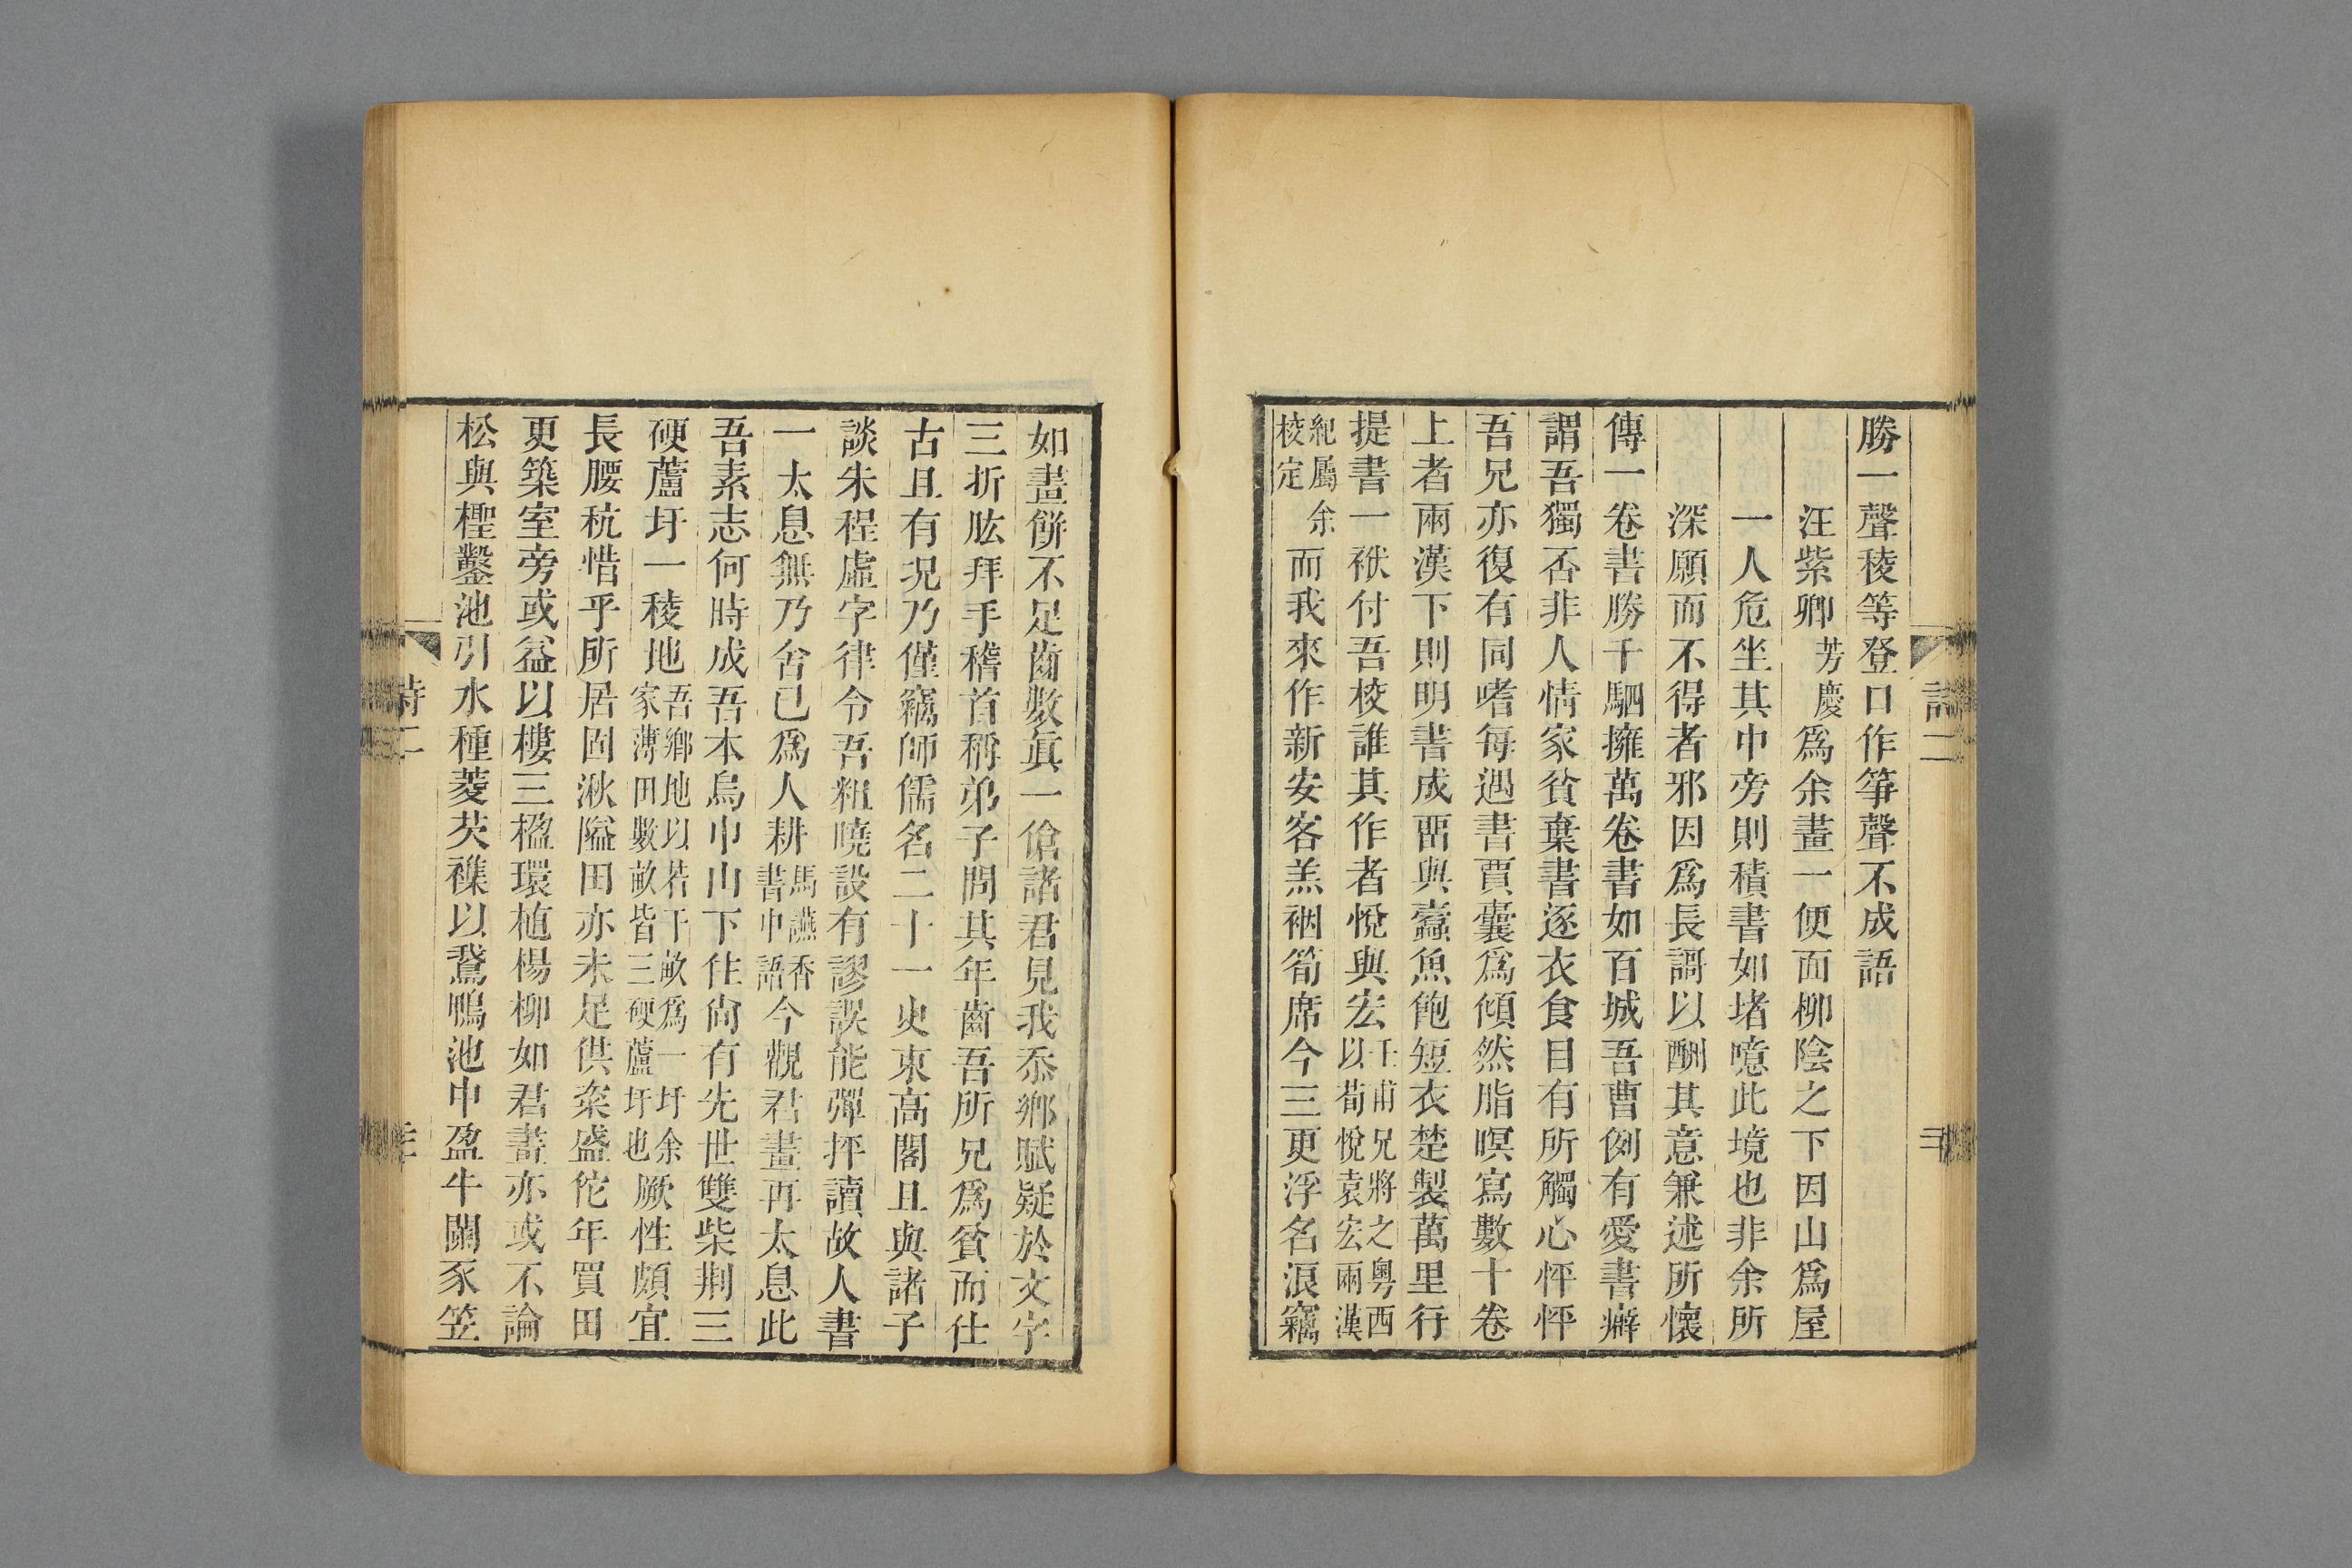 勝一聲稜等登口作箏聲不成語
汪紫卿芳慶爲余畫一便面柳陰之下因山爲屋
一人危坐其中旁則積書如堵噫此境也非余所
深願而不得者邪因爲長謌以酬其意兼述所懷
傳一卷書勝千駟擁萬卷書如百城吾曹例有愛書癖
謂吾獨否非人情家貧棄書逐衣食目有所觸心怦怦
吾兄亦復有同嗜每遇書賈囊爲傾然脂暝寫數十卷
上者兩漢下則明書成畱與蠹魚飽短衣楚製萬里行
提書一袱付吾校誰其作者悅與宏壬甫兄將之粵西以荀悅袁宏兩漢
紀屬余校定而我來作新安客羔裀筍席今三更浮名浪竊
詩二
如畫餅不足齒數眞一傖諸君見我忝鄉賦疑於文字
三折肱拜手稽首稱弟子問其年齒吾所兄爲貧而仕
古且有況乃僅竊師儒名二十一史束高閣且與諸子
談朱程虛字律令吾粗曉設有謬誤能彈抨讀故人書
一太息無乃舍已爲人耕馬讌香書中語今觀君畫再太息此
吾素志何時成吾本烏巾山下住尙有先世雙柴荆三
硬蘆圩一稜地吾鄉地以若干畝爲一圩余家薄田數畝皆三硬蘆圩也厥性頗宜
長腰秔惜乎所居固湫隘田亦未足供粢盛佗年買田
更築室旁或益以樓三楹環植楊柳如君畫亦或不論
松與檉鑿池引水種菱芡襍以鵞鴨池中盈牛闌豕笠
詩二